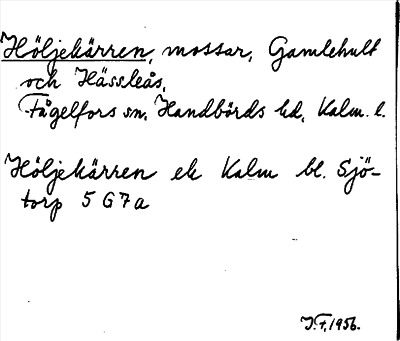 Höljekärren, mossar, Gamlehult
och Hässleås,
Fågelfors sn, Handbörds hd, Kalm. l.
Höljekärren ek Kalm bl. Sjö-
torp 5 G 7 a
J.F. 1956.